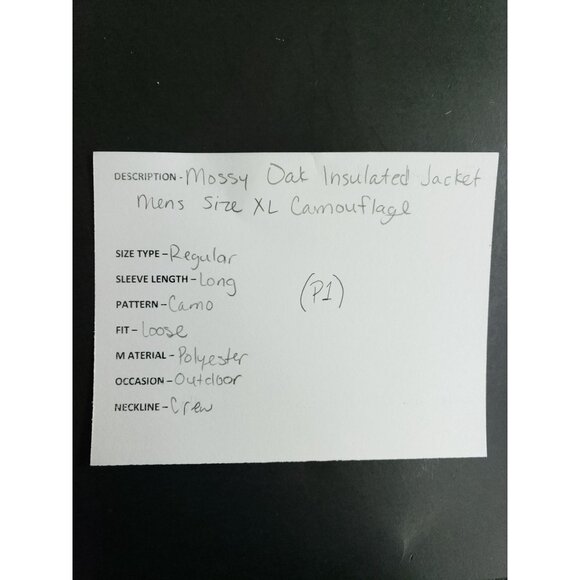 DESCRIPTION - Mossy Oak Insulated Jacket
Mens Size XL Camouflage
SIZE TYPE - Regular
SLEEVE LENGTH - Long
(P1)
PATTERN - Camo
FIT - Loose
MATERIAL - Polyester
OCCASION - Outdoor
NECKLINE - Crew